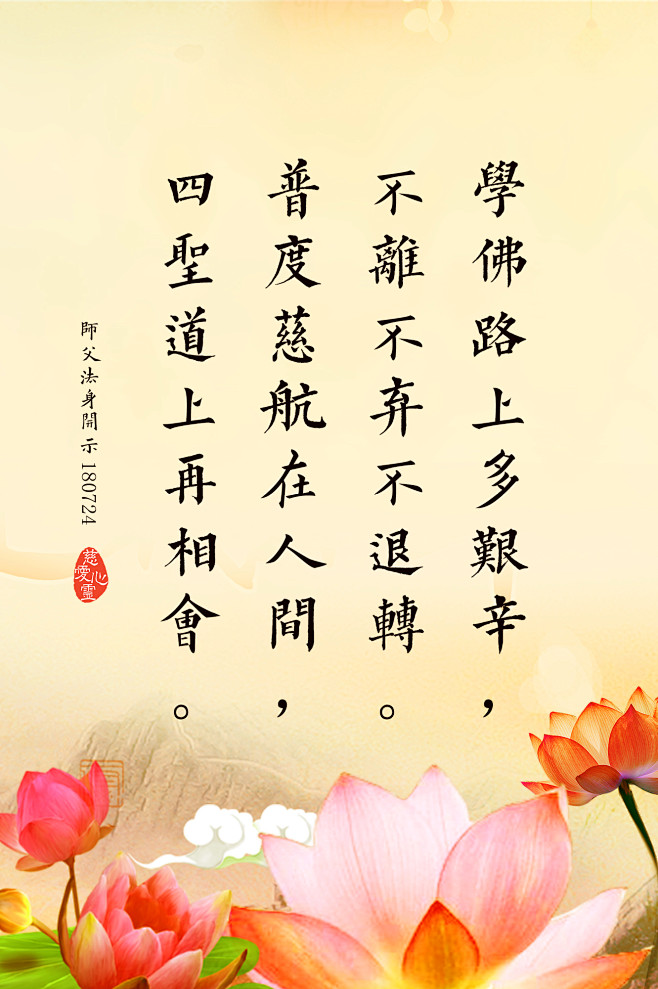 學佛路上多艱辛，
不離不弃不退轉。
普度慈航在人間，
四聖道上再相會。
師父法身開示 180724
慈心
愛靈